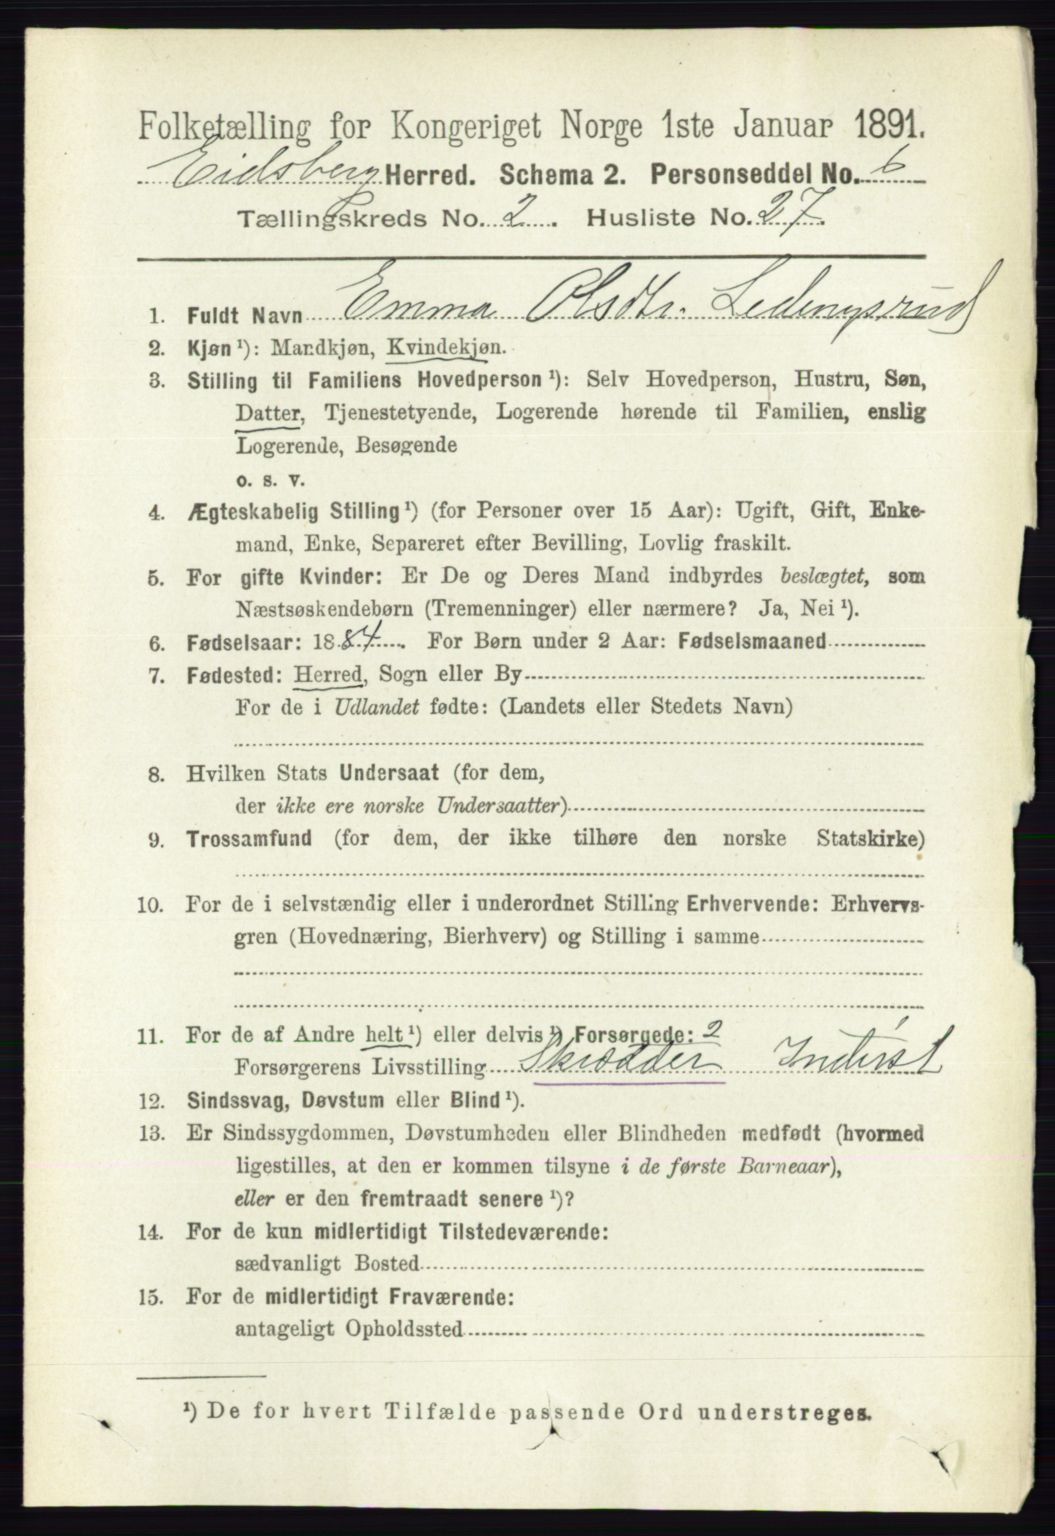 Folketælling for Kongeriget Norge 1ste Januar 1891.
Eidsberg Herred. Schema 2. Personseddel No. 6
Tællingskreds No. 2. Husliste No. 27.
1. Fuldt Navn Emma Olsdtr. Ledengsrud
2. Kjøn ¹): Mandkjøn, Kvindekjøn.
3. Stilling til Familiens Hovedperson ¹): Selv Hovedperson, Hustru, Søn,
Datter, Tjenestetyende, Logerende hørende til Familien, enslig
Logerende, Besøgende
o. s. v.
4. Ægteskabelig Stilling ¹) (for Personer over 15 Aar): Ugift, Gift, Enke-
mand, Enke, Separeret efter Bevilling, Lovlig fraskilt.
5. For gifte Kvinder: Er De og Deres Mand indbyrdes beslægtet, som
Næstsøskendebørn (Tremenninger) eller nærmere? Ja, Nei ¹).
6. Fødselsaar: 1884. For Børn under 2 Aar: Fødselsmaaned
7. Fødested: Herred, Sogn eller By
For de i Udlandet fødte: (Landets eller Stedets Navn)
8. Hvilken Stats Undersaat (for dem,
der ikke ere norske Undersaatter)
9. Trossamfund (for dem, der ikke tilhøre den norske Statskirke)
10. For de i selvstændig eller i underordnet Stilling Erhvervende: Erhvervs-
gren (Hovednæring, Bierhverv) og Stilling i samme
11. For de af Andre helt ¹) eller delvis ¹) Forsørgede: 2
Forsørgerens Livsstilling Skrædder Inderst
12. Sindssvag, Døvstum eller Blind ¹).
13. Er Sindssygdommen, Døvstumheden eller Blindheden medfødt (hvormed
ligestilles, at den er kommen tilsyne i de første Barneaar),
eller er den fremtraadt senere ¹)?
14. For de kun midlertidigt Tilstedeværende:
sædvanligt Bosted
15. For de midlertidigt Fraværende:
antageligt Opholdssted
¹) De for hvert Tilfælde passende Ord understreges.